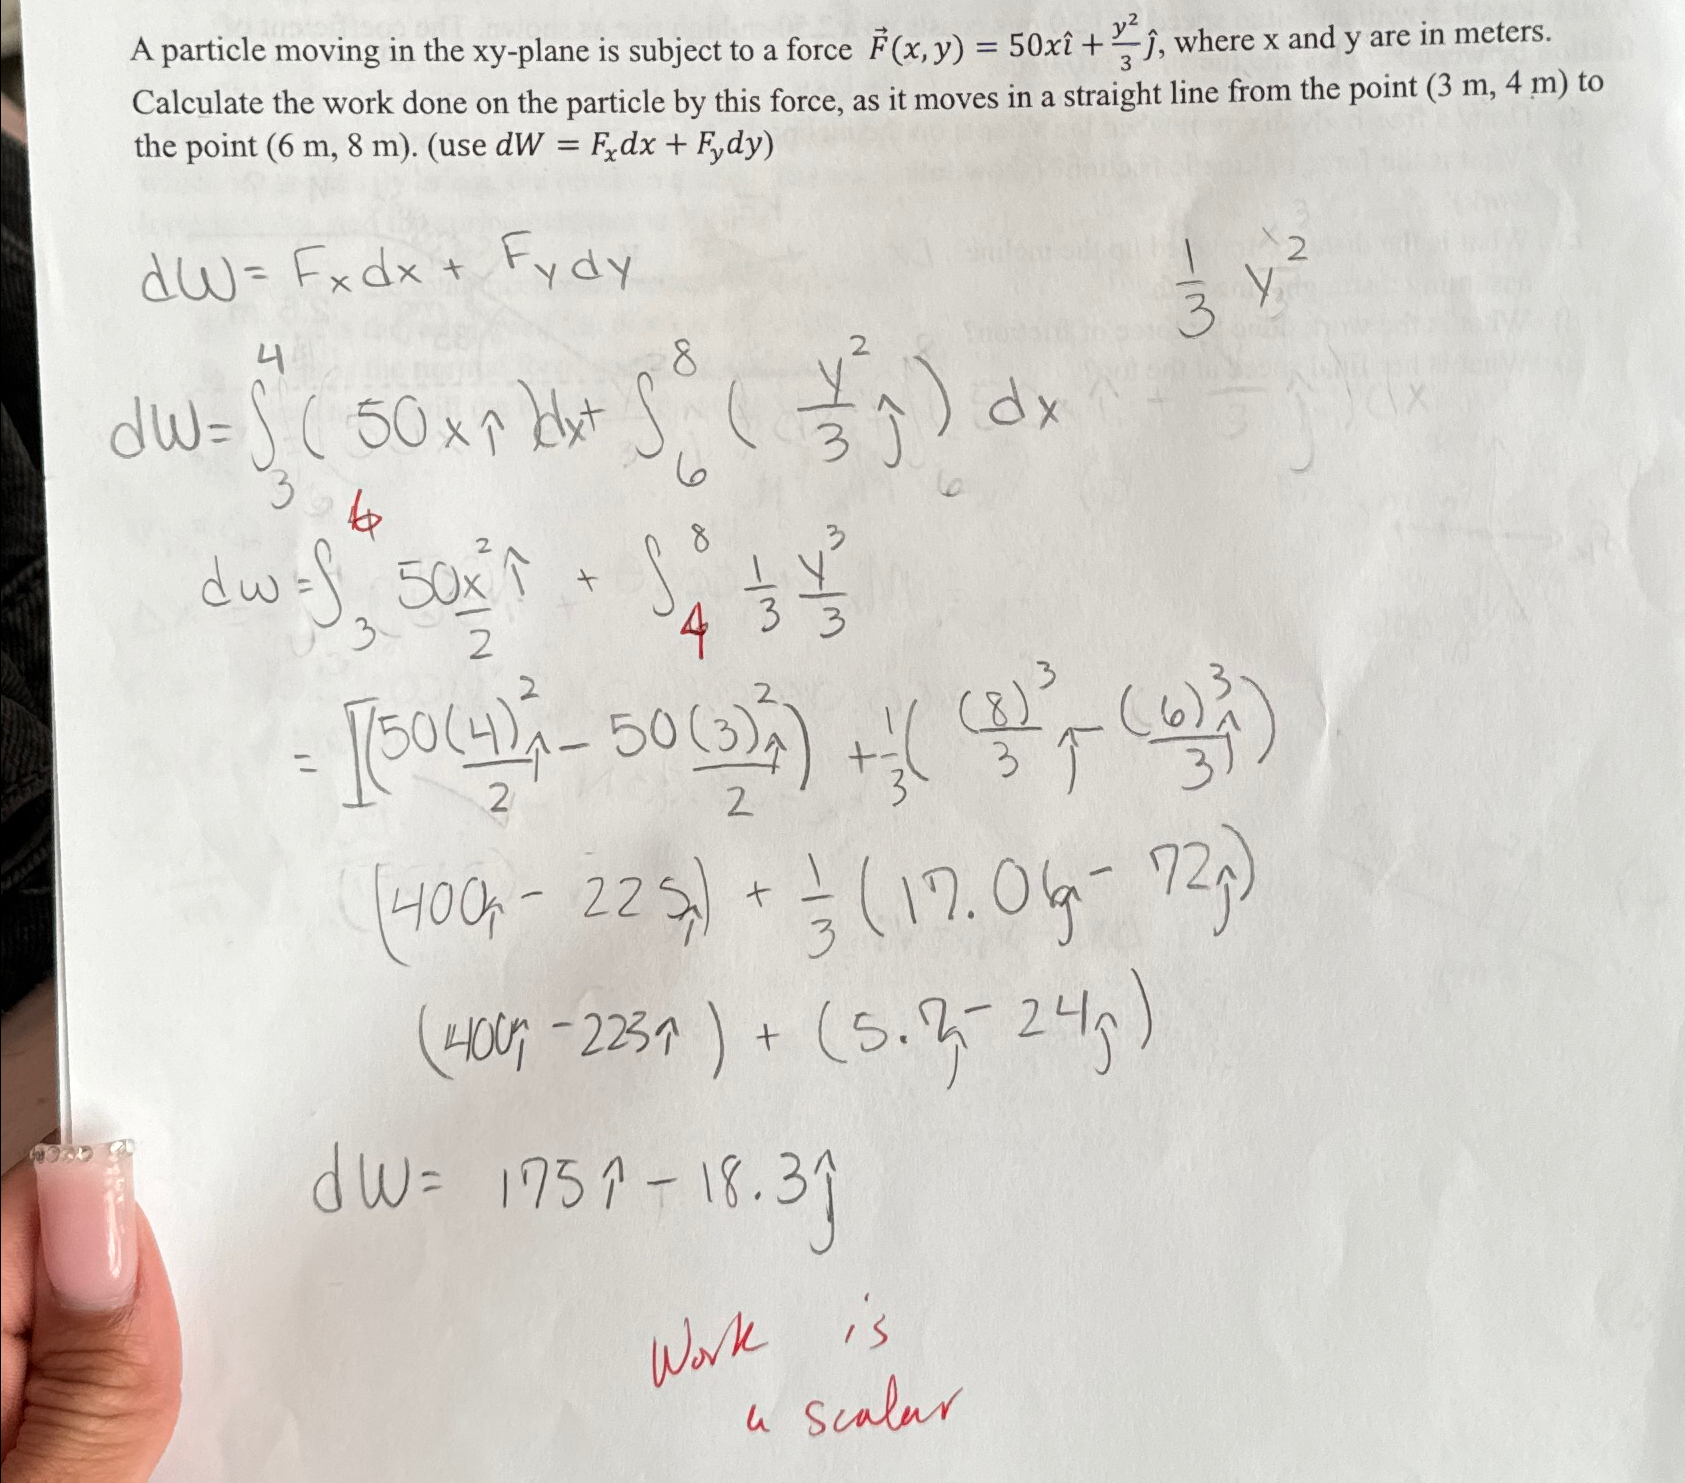 A particle moving in the xy-plane is subject to a force F⃗(x, y) = 50xî + y²/3 ĵ, where x and y are in meters.
Calculate the work done on the particle by this force, as it moves in a straight line from the point (3 m, 4 m) to
the point (6 m, 8 m). (use dW = Fₓdx + Fᵧdy)
dW = Fₓdx + Fᵧdy
1/3 y²
dW = ∫₃⁴ (50x î)dx + ∫₆⁸ (y²/3 ĵ) dx
6
dw = ∫₃ 50x²/2 î + ∫₄⁸ 1/3 y³/3
= [(50(4)²/2 î - 50(3)²/2 î) + 1/3 ((8)³/3 ĵ - (6)³/3 ĵ)
(400î - 225î) + 1/3 (17.06ĵ - 72ĵ)
(400î - 225î) + (5.7ĵ - 24ĵ)
dW = 175 î - 18.3 ĵ
Work is
a scalar